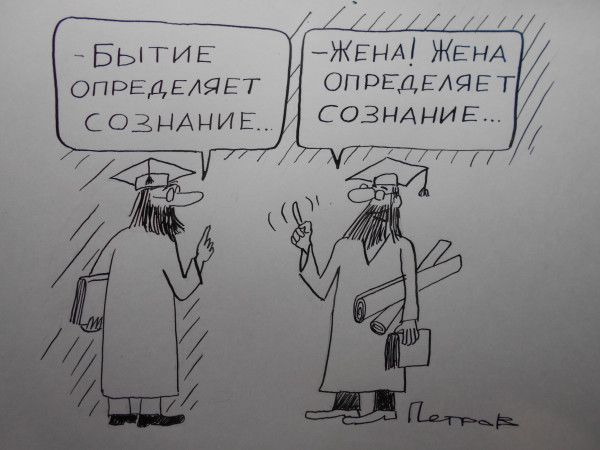 - БЫТИЕ
ОПРЕДЕЛЯЕТ
СОЗНАНИЕ...
- ЖЕНА! ЖЕНА
ОПРЕДЕЛЯЕТ
СОЗНАНИЕ...
Петров